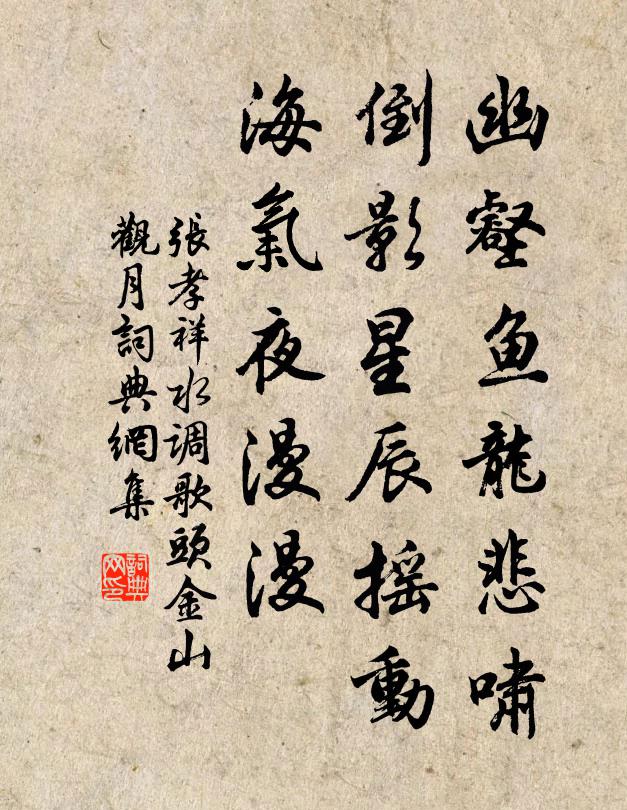 幽壑鱼龍悲啸
倒影星辰摇動
海氣夜漫漫
張孝祥水调歌頭金山
觀月詞典網集
詞典
网印